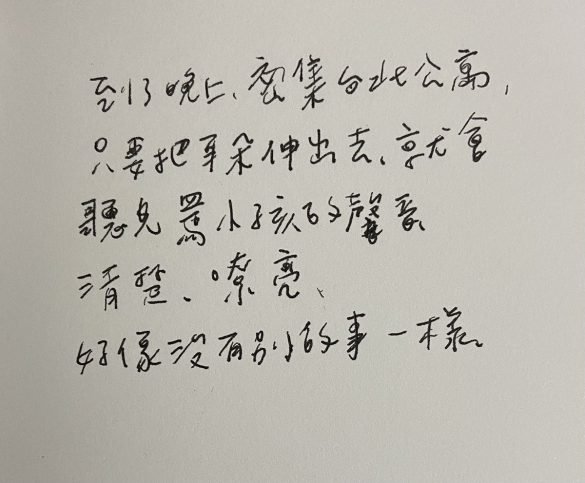 到了晚上、密集台北公寓,
只要把耳朵伸出去、就會
聽見罵小孩的聲音
清楚、嘹亮、
好像沒有別的事一樣。